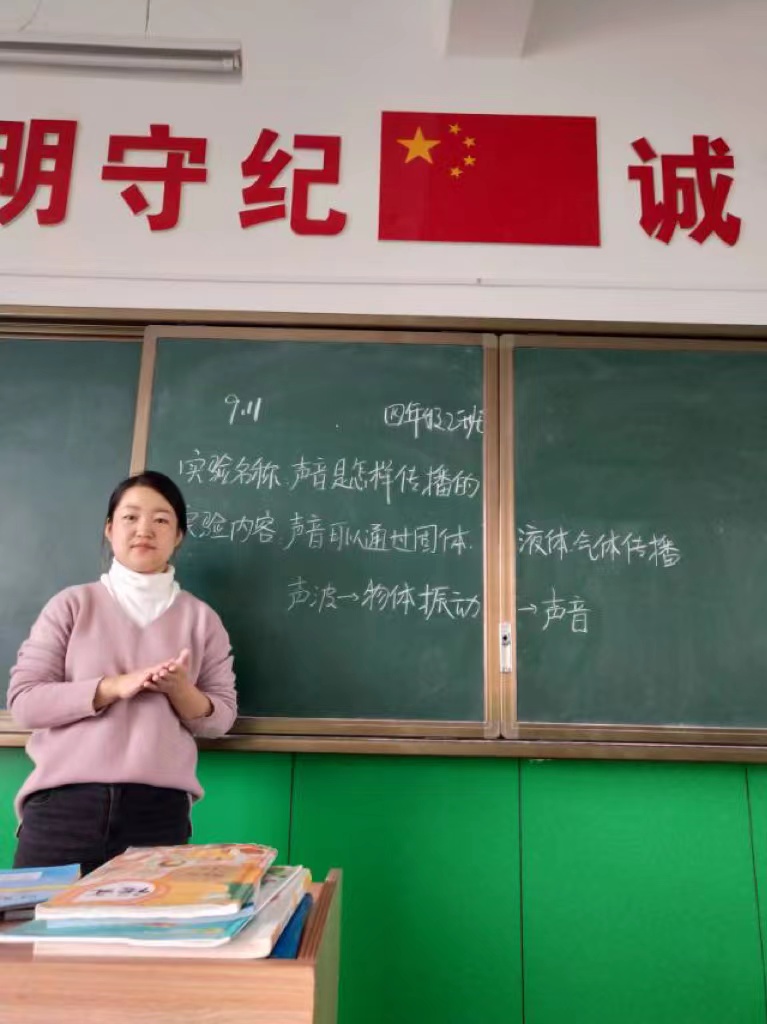 明守纪 诚
9.11 四年级2班
实验名称:声音是怎样传播的
实验内容:声音可以通过固体、液体、气体传播
声波→物体振动→声音
语文